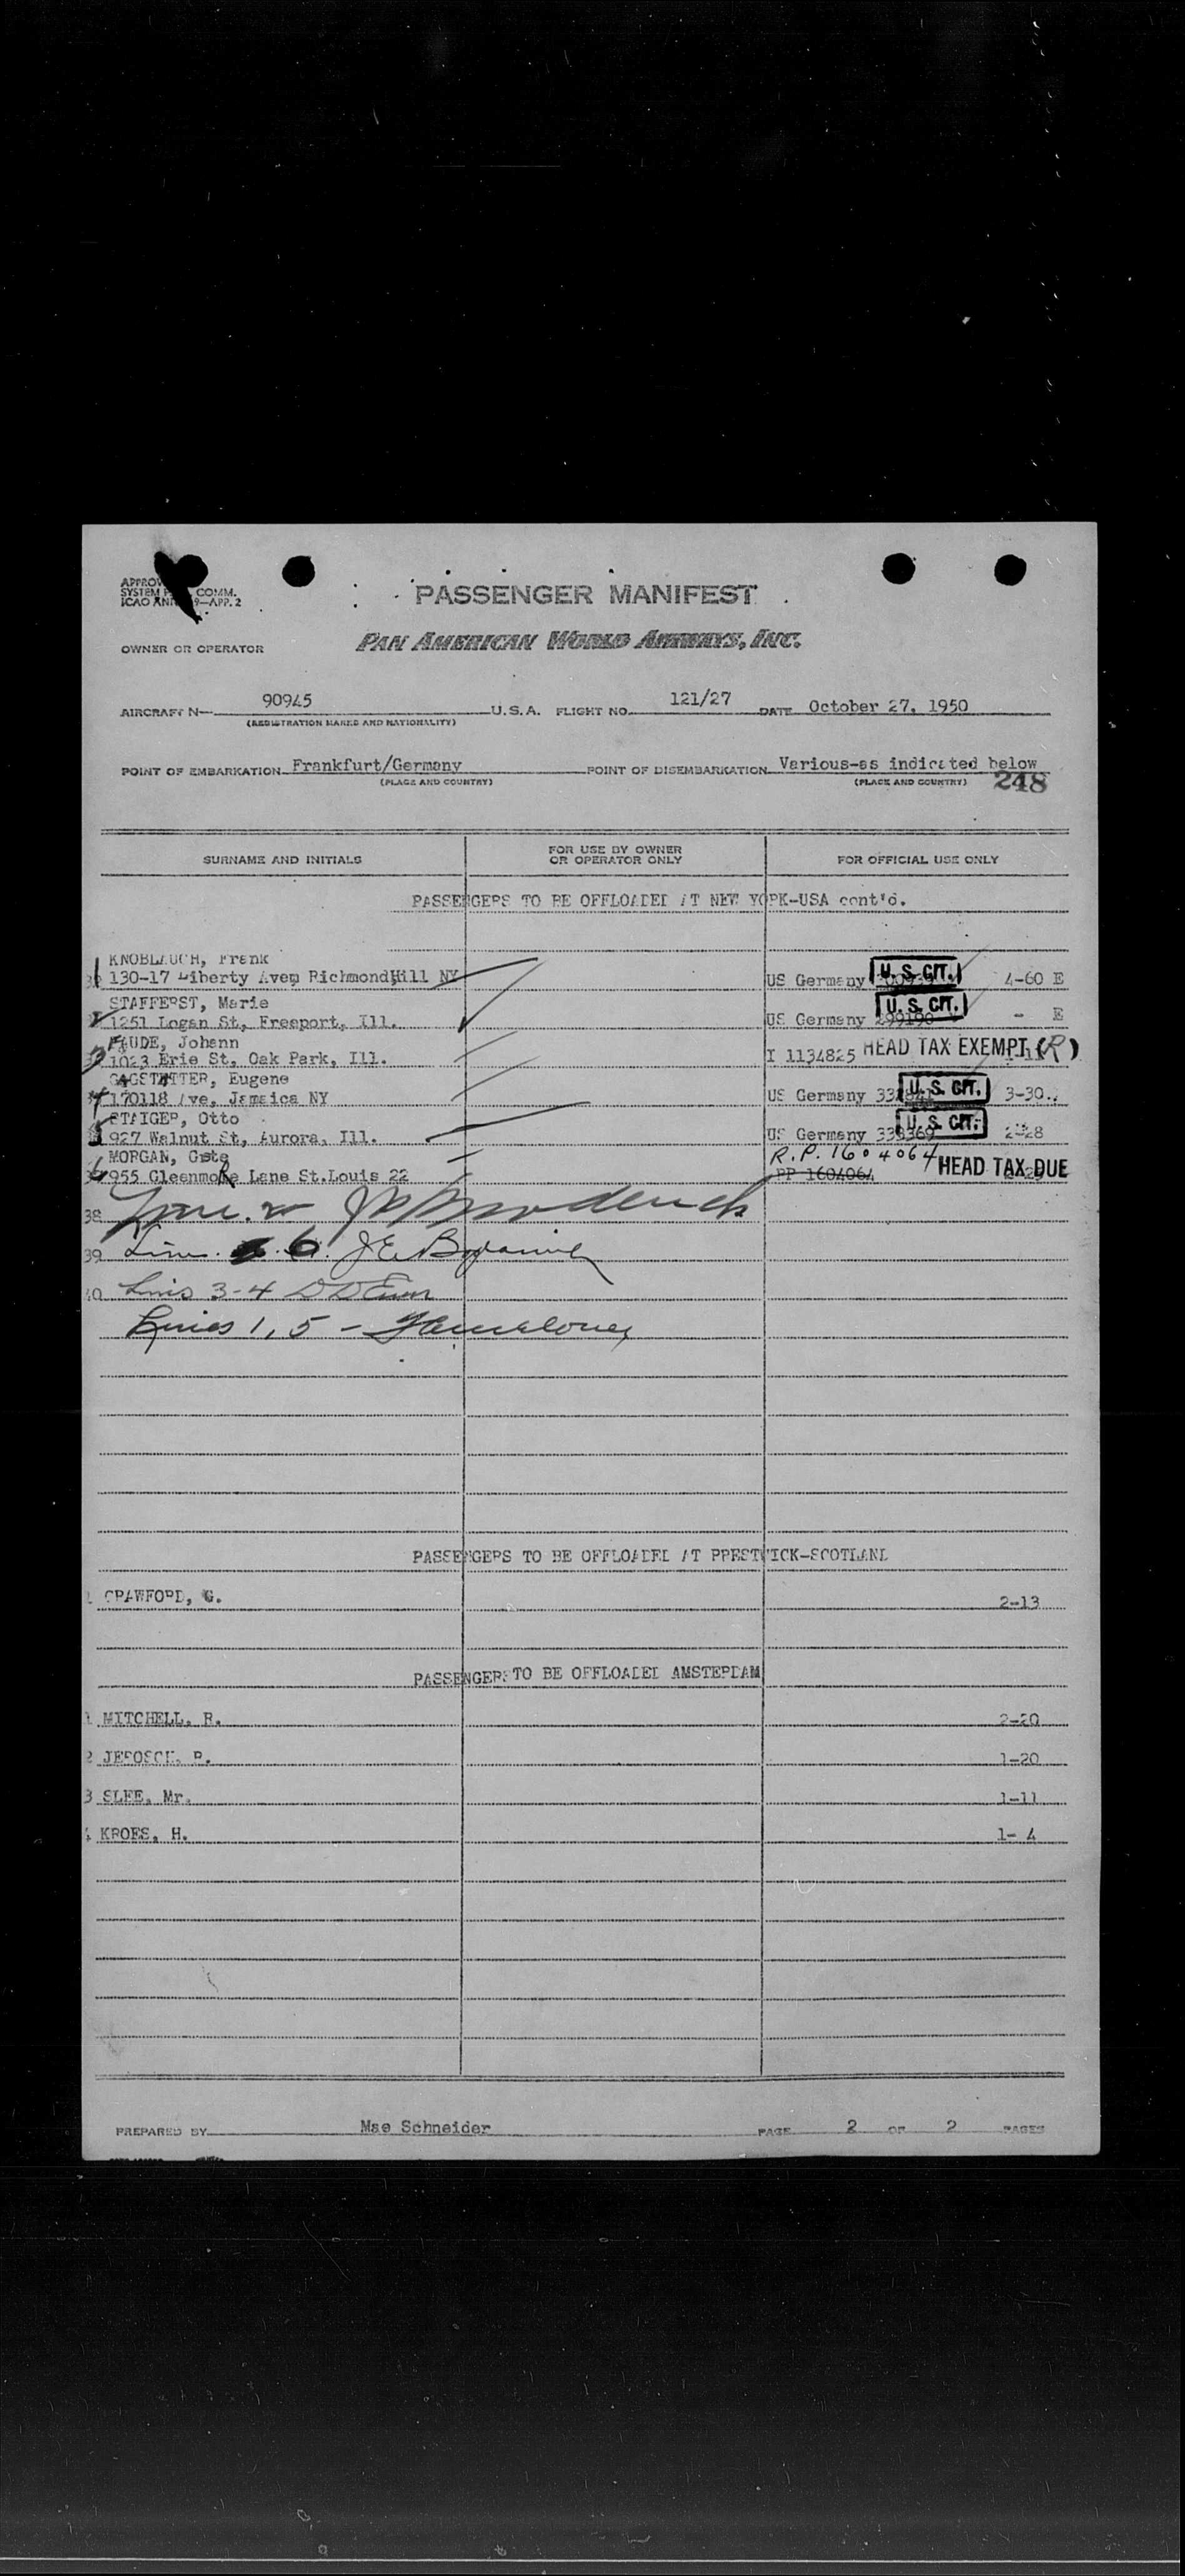 PASSENGER MANIFEST
COMM.
ICAO 9—APP. 2
OWNER OR OPERATOR
PAN AMERICAN WORLD AIRWAYS, INC.
AIRCRAFT N— 90945 U.S.A. FLIGHT NO. 121/27 DATE October 27, 1950
(REGISTRATION MARKS AND NATIONALITY)
POINT OF EMBARKATION Frankfurt/Germany POINT OF DISEMBARKATION Various-as indicated below
(PLACE AND COUNTRY) (PLACE AND COUNTRY) 248
SURNAME AND INITIALS
FOR USE BY OWNER
OR OPERATOR ONLY
FOR OFFICIAL USE ONLY
PASSENGERS TO BE OFFLOADED AT NEW YORK-USA cont'd.
KNOBLAUCH, Frank
1 130-17 Liberty Avem RichmondHill NY US Germany U.S. CIT. 4-60 E
STAFFERST, Marie
1251 Logan St, Freeport, Ill. US Germany 299190 U.S. CIT. - E
FAUDE, Johann
3 1023 Erie St, Oak Park, Ill. I 1134825 HEAD TAX EXEMPT (R)
GAGSTATTER, Eugene
4 170118 Ave, Jamaica NY US Germany U.S. CIT. 3-30
STAIGER, Otto
927 Walnut St, Aurora, Ill. US Germany 338369 U.S. CIT. 2-28
MORGAN, Gste R.P. 1604064
6 955 Gleenmore Lane St.Louis 22 PP 1604064 HEAD TAX DUE
38
39 6.
40 3-4
Lines 1, 5 -
PASSENGERS TO BE OFFLOADED AT PRESTWICK-SCOTLAND
1 CRAWFORD, G. 2-13
PASSENGERS TO BE OFFLOADED AMSTERDAM
1 MITCHELL, R. 2-20
2 JEROSCH, R. 1-20
3 SLEE, Mr. 1-11
4 KROES, H. 1- 4
PREPARED BY Mae Schneider PAGE 2 OF 2 PAGES